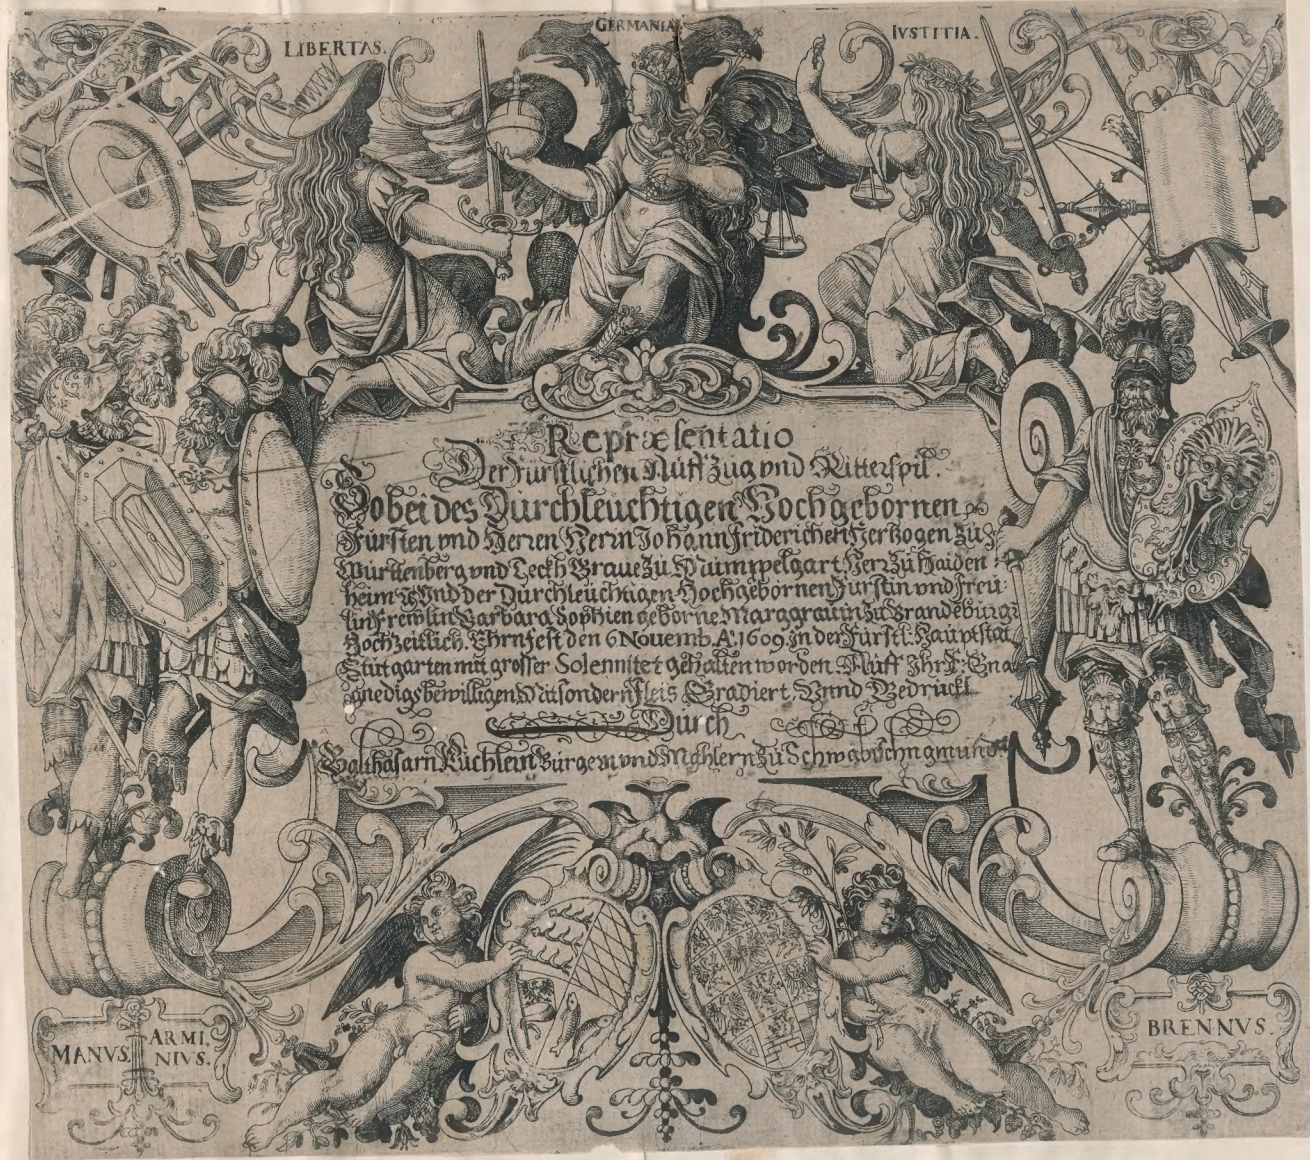 LIBERTAS.
GERMANIA
IVSTITIA.
Repræsentatio
Der Fürstlichen Auff Zug vnd Ritterspil.
So bei des Durchleuchtigen Hochgebornen
Fürsten vnd Herren Herrn Johann Friderichen Hertzogen Zu
Württenberg vnd Teckh Graue Zu Mümppelgart Herr Zu Haiden:
heim Vnd der Durchleuchtigen Hochgebornen Fürstin vnd Freu:
lin Frewlin Barbara Sophien geborne Marggrauin Zu Brandeburg
Hochzeitlich. Ehrnfest den 6 Nouemb. A.º 1609. In der Fürstl: Hauptstat
Stutgarten mit grosser Solennitet gehalten worden. Auff Ihr F: Gna
gnedigs bewilligen Mit sonderm fleis Gradiert. Vnnd Gedruckt
Durch
Balthasarn Küchlein Burgern vnd Mahlern Zu Schwäbischn gmund.
MANVS.
ARMI
NIVS.
BRENNVS.